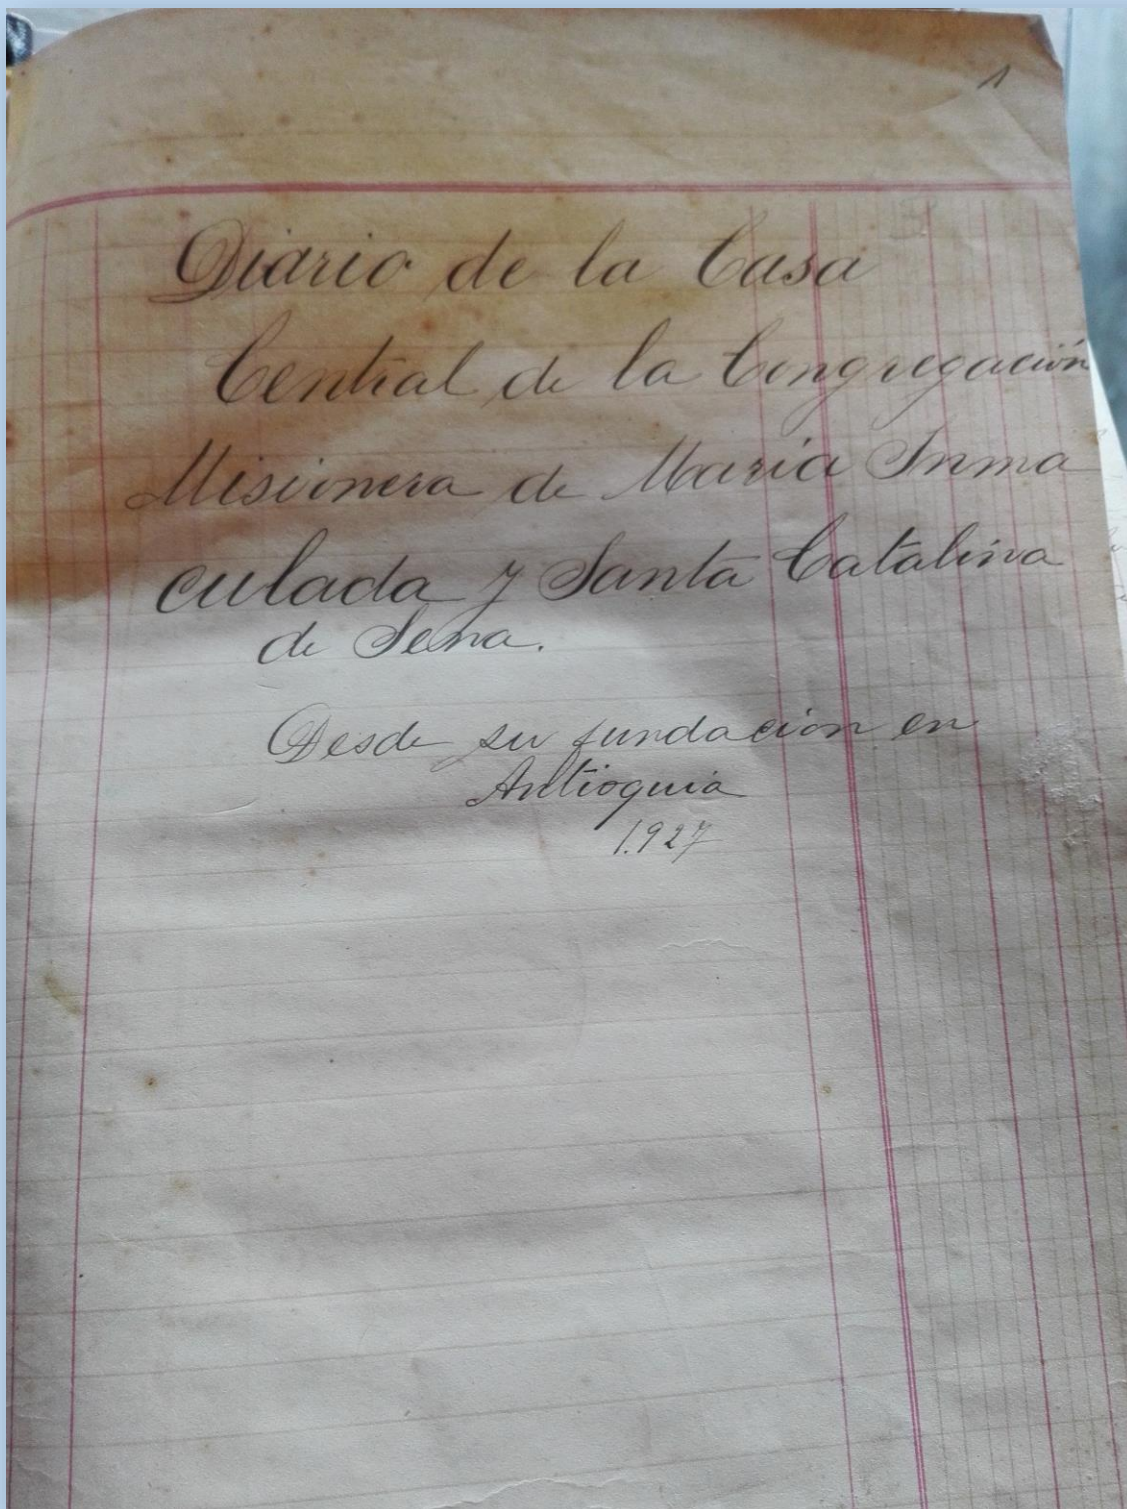 1
Diario de la Casa
Central de la Congregación
Misionera de María Inma
culada y Santa Catalina
de Sena.
Desde su fundación en
Antioquia
1.927